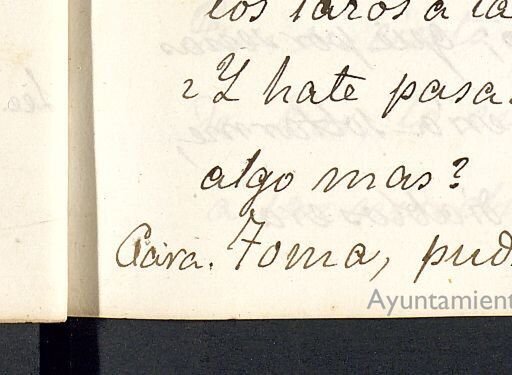 los faros a la
¿Y hate pasa
algo mas?
Cara. Toma, pud
Ayuntamient